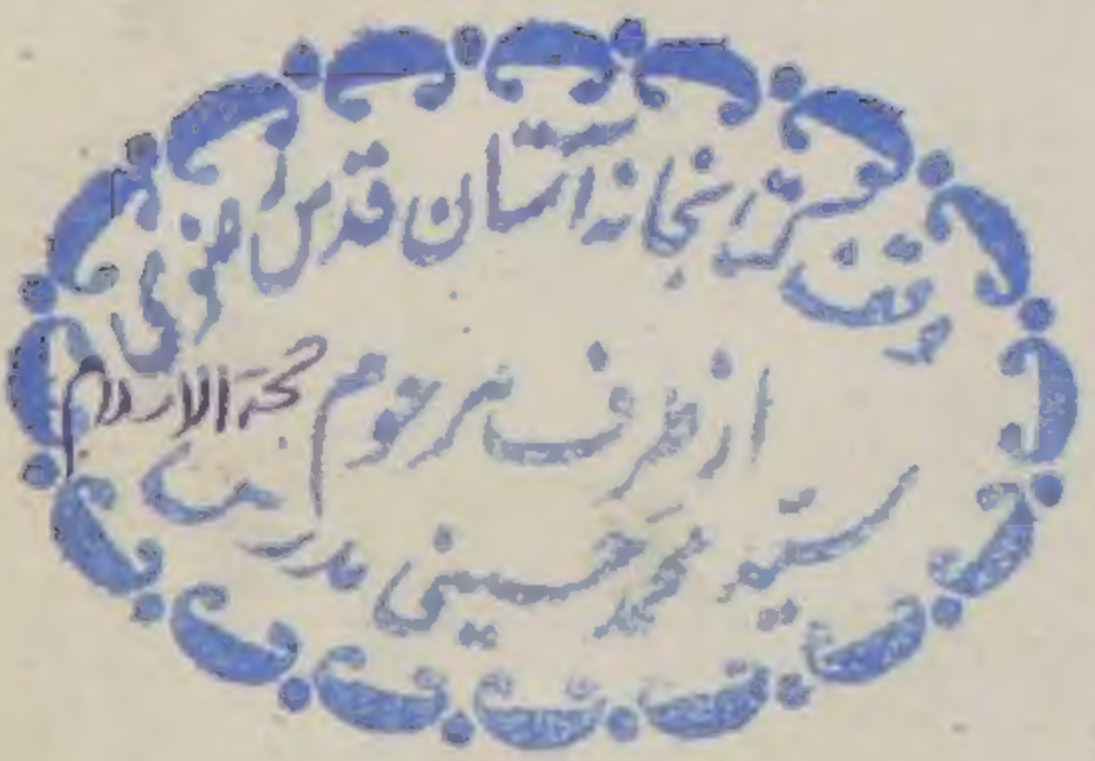 وقف بر کتابخانه آستان قدس رضوی
از طرف مرحوم حجة الاسلام
سید محمد حسینی